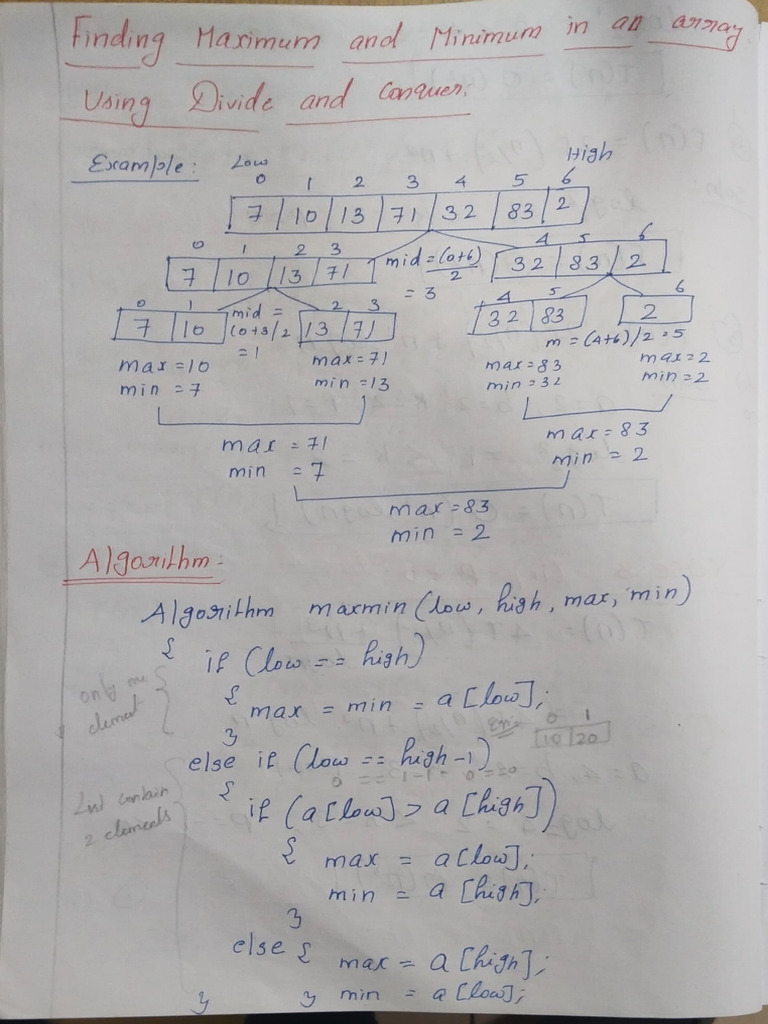 Finding Maximum and Minimum in an array
Using Divide and Conquer:
Example: Low High
0 1 2 3 4 5 6
7 10 13 71 32 83 2
0 1 2 3 4 5 6
7 10 13 71 mid = (0+6)/2 32 83 2
= 3
0 1 2 3 4 5 6
7 10 mid = (0+3)/2 13 71 32 83 2
= 1 m = (4+6)/2 = 5
max = 10 max = 71 max = 83 max = 2
min = 7 min = 13 min = 32 min = 2
max = 71 max = 83
min = 7 min = 2
max = 83
min = 2
Algorithm:
Algorithm maxmin (low, high, max, min)
{ if (low == high)
only one element
{ max = min = a [low];
}
Ex: 0 1
10 20
else if (low == high-1)
0 == 1-1 == 0
List contain
2 elements
{ if (a [low] > a [high])
{ max = a [low];
min = a [high];
}
else { max = a [high];
} } min = a [low];